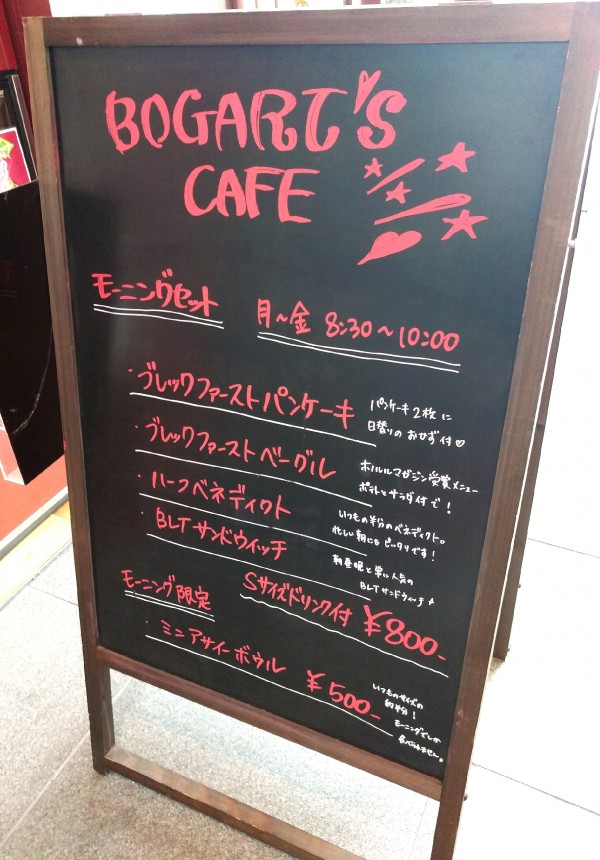 BOGART'S
CAFE
モーニングセット 月～金 8:30～10:00
・ブレックファーストパンケーキ
パンケーキ2枚に
日替りのおかず付♡
・ブレックファーストベーグル
ホノルルマガジン受賞メニュー
ポテトとサラダ付で!
・ハーフベネディクト
いつもの半分のベネディクト。
忙しい朝にもピッタリです!
・BLTサンドウィッチ
朝昼晩と常に人気の
BLTサンドウィッチ♪
Sサイズドリンク付 ¥800-
モーニング限定
・ミニアサイーボウル ¥500-
いつものサイズの
約半分!
モーニングでしか
食べられません。